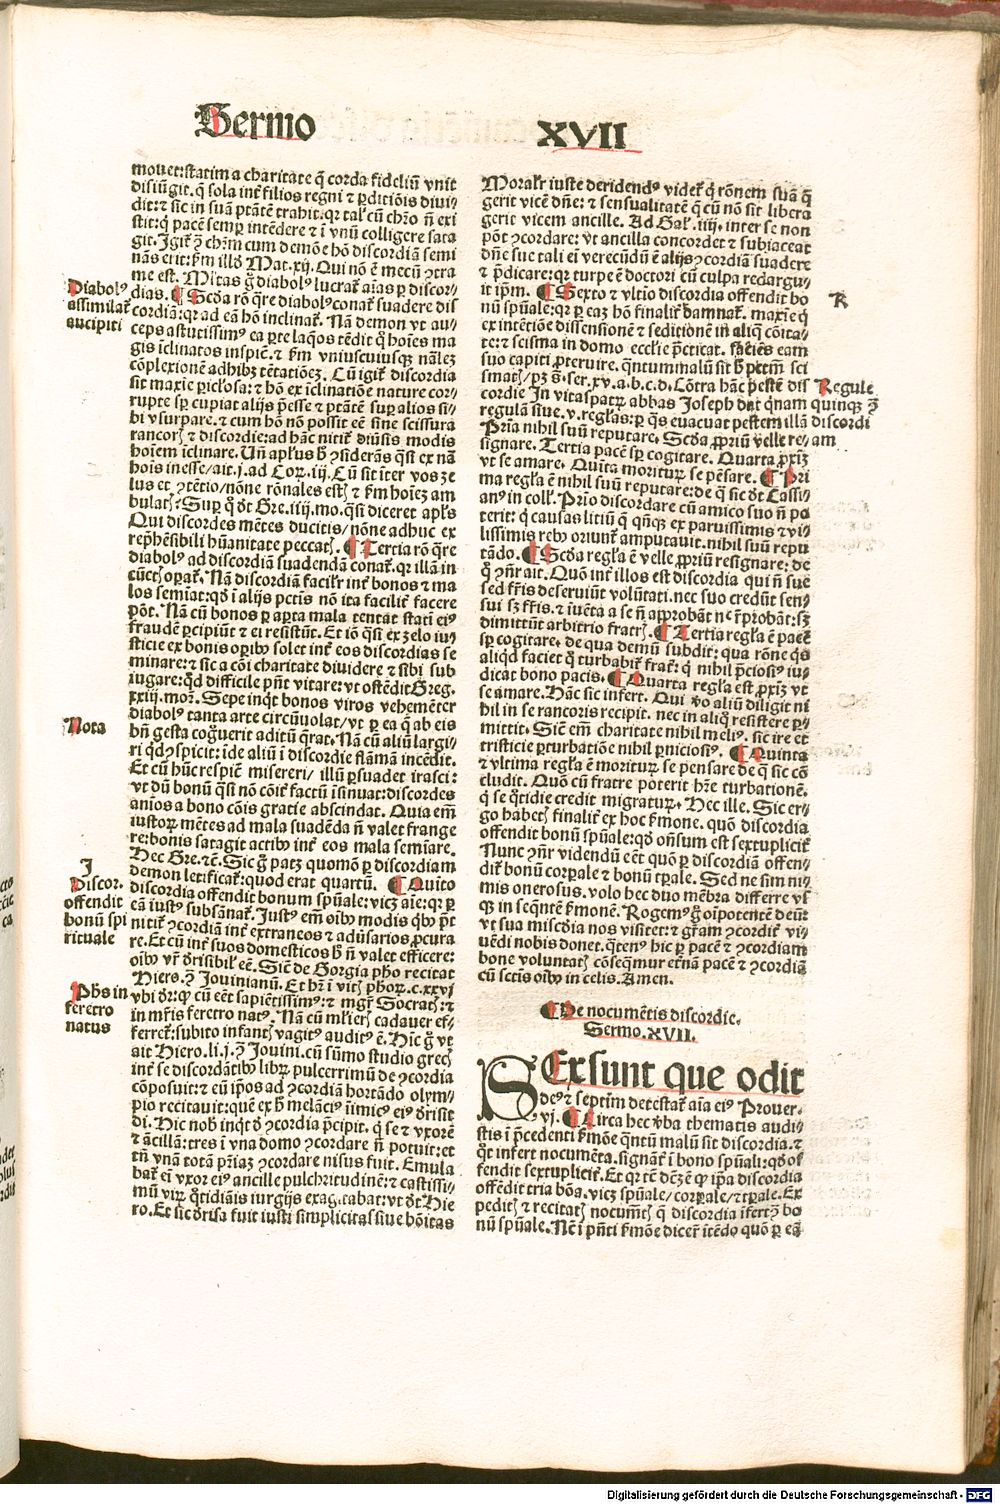 Sermo XVII
mouet: statim a charitate q̄ corda fideliū vnit
disiūgit. q̄ sola int̄ filios regni ⁊ ꝑditiōis diui/
dit: ⁊ sic in suā ptātē trahit. qꝛ tal' cū chꝛo n̄ exi
stit: q̇ pacē semꝑ intēdere ⁊ ī vnū colligere sata
git. Igit̄ ꝯ chꝛm cum demōe hō discordiā semi
nās erit: ẜm illđ Mat. xij. Qui nō ē mecū ꝯtra
me est. Mltas g̊ diabolꝰ lucrat̄ aīas ꝑ discor/
dias. ¶ Scđa rō q̄re diabolꝰ conat̄ suadere dis
cordiā: qꝛ ad eā hō inclinat̄. Nā demon vt au/
ceps astutissimꝰ ea ꝑte laq̄os tēdit q̊ hoīes ma
gis īclinatos inspic̄. ⁊ ẜm vniuscuiusqꝫ nālēꝫ
cōplexionē adhibꝫ tētatiōeꝫ. Cū igit̄ discordia
sit maxīe ꝑiclosa: ⁊ hō ex īclinatiōe nature cor/
rupte sp̄ cupiat alijs p̄esse ⁊ ptātē suꝑ alios si/
bi vsurpare. ⁊ cum hō nō possit eē sine scissura
rancoꝝ ⁊ discordie: ad hāc nitit̄ diūsis modis
hoīem īclinare. Uñ apłus ꝯsiderās q̄si ex nā
hoīs inesse/ait. j. ad Coꝝ. iij. Cū sit iter vos ze
lus et ꝯtētio/nōne rōnales estꝭ ⁊ ẜm hoīeꝫ am
bulatꝭ? Suꝑ q̊ đt Gre. iiij. mo. q̄si diceret apłs
Qui discordes mētes ducitis/nōne adhuc ex
rep̄hēsibili hūanitate peccatꝭ. ¶ Tertia rō q̄re
diabolꝰ ad discordiā suadendā conat̄. qꝛ illā in
cūctꝭ oꝑat̄. Nā discordiā facił'r int̄ bonos ⁊ ma
los semīat: qđ ī alijs pctīs nō ita facilit̄ facere
pōt. Nā cū bonos ꝑ aꝑta mala tentat stati eiꝰ
fraudē ꝑcipiūt ⁊ ei resistūt. Et iō q̄si ex zelo iu/
sticie ex bonis oꝑibꝰ solet int̄ eos discordias se
minare: ⁊ sic a cōi charitate diuidere ⁊ sibi sub
iugare: qđ difficile pn̄t vitare: vt ostēdit Greg.
xxiij. moꝝ. Sepe inqt bonos viros vehemēter
diabolꝰ tanta arte circūuolat/vt ꝑ ea q̄ ab eis
bn̄ gesta cog̊uerit aditū q̄rat. Nā cū aliū largi/
ri qđ ꝯspicit: īde aliū ī discordie flāmā incēdit.
Et cū hūc respic̄ misereri/illū ꝑsuadet irasci:
vt dū bonū q̄si nō cōit̄ factū īsinuat: discordes
anīos a bono cōis gratie abscindat. Quia em̄
iustoꝝ mētes ad mala suadēda n̄ valet frange
re: bonis satagit actibꝰ int̄ eos mala semīare.
Hec Gre. ⁊č. Sic g̊ patꝫ quomō ꝑ discordiam
demon letificat̄: quod erat quartū. ¶ Quito
discordia offendit bonum spūale: vicꝫ aīe: qꝛ ꝑ
eā iustꝰ subsānat̄. Justꝰ em̄ oībꝰ modis q̊bꝰ p̄t
nitit̄ ꝯcordiā int̄ extraneos ⁊ adūsarios ꝓcura
re. Et cū int̄ suos domesticos h̄ n̄ valet efficere:
oībꝰ vr̄ đrisibil' eē. Sic̄ de Gorgia pho recitat
Hiers. ꝯ Jouinianū. Et hr̄ ī vitꝭ phoꝝ. c. xxvj
vbi dr̄: qꝫ cū eēt sapiētissimꝰ: ⁊ mgr̄ Socratꝭ: ⁊
in mr̄is feretro natꝰ. Nā cū mlieꝝ cadauer ef/
ferret̄: subito infantꝭ vagitꝰ auditꝰ ē. Hic g̊ vt
ait Hiero. li. j. ꝯ Jouini. cū sūmo studio grecꝭ
int̄ se discordātibꝰ librꝝ pulcerrimū de ꝯcordia
cōposuit: ⁊ cū ip̄os ad ꝯcordiā hortādo olym/
pio recitauit: quē ex h̄ melāciꝰ īimicꝰ eiꝰ đrisit
di. Hic nob̄ inqt đ ꝯcordia p̄cipit. q̇ se ⁊ vxorē
⁊ ācillā: tres ī vna domo ꝯcordare n̄ potuit: et
tn̄ vnā totā pr̄iaꝫ ꝯcordare nisus fuit. Emula
bat̄ ei vxor eiꝰ ancille pulchritudinē: ⁊ castissi/
mū viꝝ q̊tidiāis iurgijs exagitabat: vt đt Hie
ro. Et sic đrisa fuit iusti simplicitas siue bōitas
Diabolꝰ
assimilat̄
aucipiti
Nota
J
Discor.
offendit
bonū spi
rituale
Phs in
feretro
natus
Moral'r iuste deridendꝰ videt̄ q̇ rōnem suā q̄
gerit vicē dn̄e: ⁊ sensualitatē q̄ cū nō sit libera
gerit vicem ancille. Ad Gal'. iiij. inter se non
pōt ꝯcordare: vt ancilla concordet ⁊ subiaceat
dn̄e sue tali ei verecūdū ē alijs ꝯcordiā suadere
⁊ p̄dicare: qꝛ turpe ē doctori cū culpa redargu/
it ip̄m. ¶ Sexto ⁊ vltīo discordia offendit bo
nū spūale: qꝛ ꝑ eaꝫ hō finalit̄ damnat̄. maxīe q̇
ex intētiōe dissensionē ⁊ seditionē in aliq̄ cōita/
te: ⁊ scisma in domo ecclīe p̄cticat. faciēs eam
suo capiti ꝓteruire. q̄ntummalū sit h̄ pctm̄ sci
smatꝭ/pꝫ s̄. ser. xv. a. b. c. d. Cōtra hāc pestē dis
cordie In vitaspatꝝ abbas Joseph dat q̄nam
regulā siue. v. reglas: ꝑ q̄s euacuat pestem illā
Prīa nihil suū reputare. Scđa ꝓpriū velle re/
signare. Tertia pacē sp̄ cogitare. Quarta ꝓxīꝫ
vt se amare. Quita moritꝝ se pēsare. ¶ Pri
ma regla ē nihil suū reputare: de q̄ sic đt Cassi/
anꝰ in coll'. Prīo discordare cū amico suo n̄ po
terit: q̇ causas litiū q̄ qn̄qꝫ ex paruissimis ⁊ vi/
lissimis rebꝰ oriunt̄ amputauit. nihil suū repu
tādo. ¶ Scđa regla ē velle ꝓpriū resignare: de
q̊ ꝯn̄r ait. Quō int̄ illos est discordia qui n̄ sue
sed fr̄is deseruiūt volūtati. nec suo credūt sen/
sui sꝫ fr̄is. ⁊ iuēta a se n̄ approbāt nc̄ r̄probāt: sꝫ
dimittūt arbitrio fratꝝ. ¶ Tertia regla ē pacē
sp̄ cogitare. de qua demū subdit: qua rōne q̇s
aliqđ faciet q̊ turbabit̄ frat̄: q̇ nihil p̄ciosiꝰ iu/
dicat bono pacis. ¶ Quarta regla est ꝓxīꝫ vt
se amare. Hāc sic infert. Qui vo aliū diligit ni
hil in se rancoris recipit. nec in aliq̊ resistere ꝑ/
mittit. Sic̄ em̄ charitate nihil meliꝰ. sic ire et
tristicie ꝑturbatiōe nihil ꝑniciosiꝰ. ¶ Quinta
⁊ vltima regla ē morituꝝ se pensare de q̄ sic cō
cludit. Quō cū fratre poterit hr̄e turbationē.
q̇ se q̊tidie credit migratuꝝ. Hec ille. Sic er/
go habetꝭ finalit̄ ex hoc ẜmone. quō discordia
offendit bonū spūale: qđ on̄sum est sextuplicit̄
Nunc ꝯn̄r videndū eēt quō ꝑ discordiā offen/
dit̄ bonū corꝑale ⁊ bonū tꝑale. Sed ne sim ni/
mis onerosus. volo hec duo mēbra differre vsꝰ
qꝫ in seq̄ntē ẜmonē. Rogemꝰ g̊ oīpotentē deū:
vt sua miscđia nos visitet: ⁊ gr̄am ꝯcordit̄ vi/
uēdi nobis donet. q̄tenꝰ hic ꝑ pacē ⁊ ꝯcordiam
bone voluntatꝭ cōseq̄mur et̄nā pacē ⁊ ꝯcordiā
cū sctīs oībꝰ in celis. Amen.
R
Regule
quinqꝫ ꝯ
discordi
am
¶ De nocumētis discordie.
Sermo. XVII.
SExsunt que odit
deꝰ ⁊ septīm detestat̄ aīa eiꝰ Prouer.
vj. ¶ Circa hec v̄ba thematis audi/
stis ī p̄cedenti ẜmōe q̄ntū malū sit discordia. ⁊
q̊t infert nocumēta. signāt̄ ī bono spūali: qđ of
fendit sextuplicit̄. Et qꝛ tē dēꝫē qꝫ ip̄a discordia
offēdit tria bōa. vicꝫ spūale/corꝑale/⁊ tꝑale. Ex
peditꝭ ⁊ recitatꝭ nocumētꝭ q̄ discordia īfert ꝯ bo
nū spūale. Nc̄ ī pn̄ti ẜmōe dicet̄ itēdo quō ꝑ eā
Digitalisierung gefördert durch die Deutsche Forschungsgemeinschaft - DFG